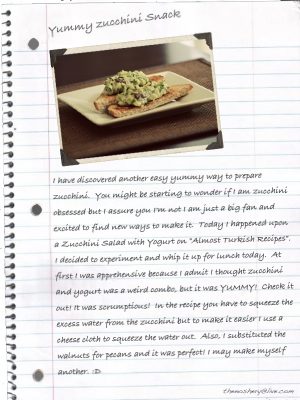 Yummy zucchini Snack
I have discovered another easy yummy way to prepare
zucchini. You might be starting to wonder if I am zucchini
obsessed but I assure you I'm not I am just a big fan and
excited to find new ways to make it. Today I happened upon
a Zucchini Salad with Yogurt on "Almost Turkish Recipes".
I decided to experiment and whip it up for lunch today. At
first I was apprehensive because I admit I thought zucchini
and yogurt was a weird combo, but it was YUMMY! Check it
out! It was scrumptious! In the recipe you have to squeeze the
excess water from the zucchini but to make it easier I use a
cheese cloth to squeeze the water out. Also, I substituted the
walnuts for pecans and it was perfect! I may make myself
another. :D